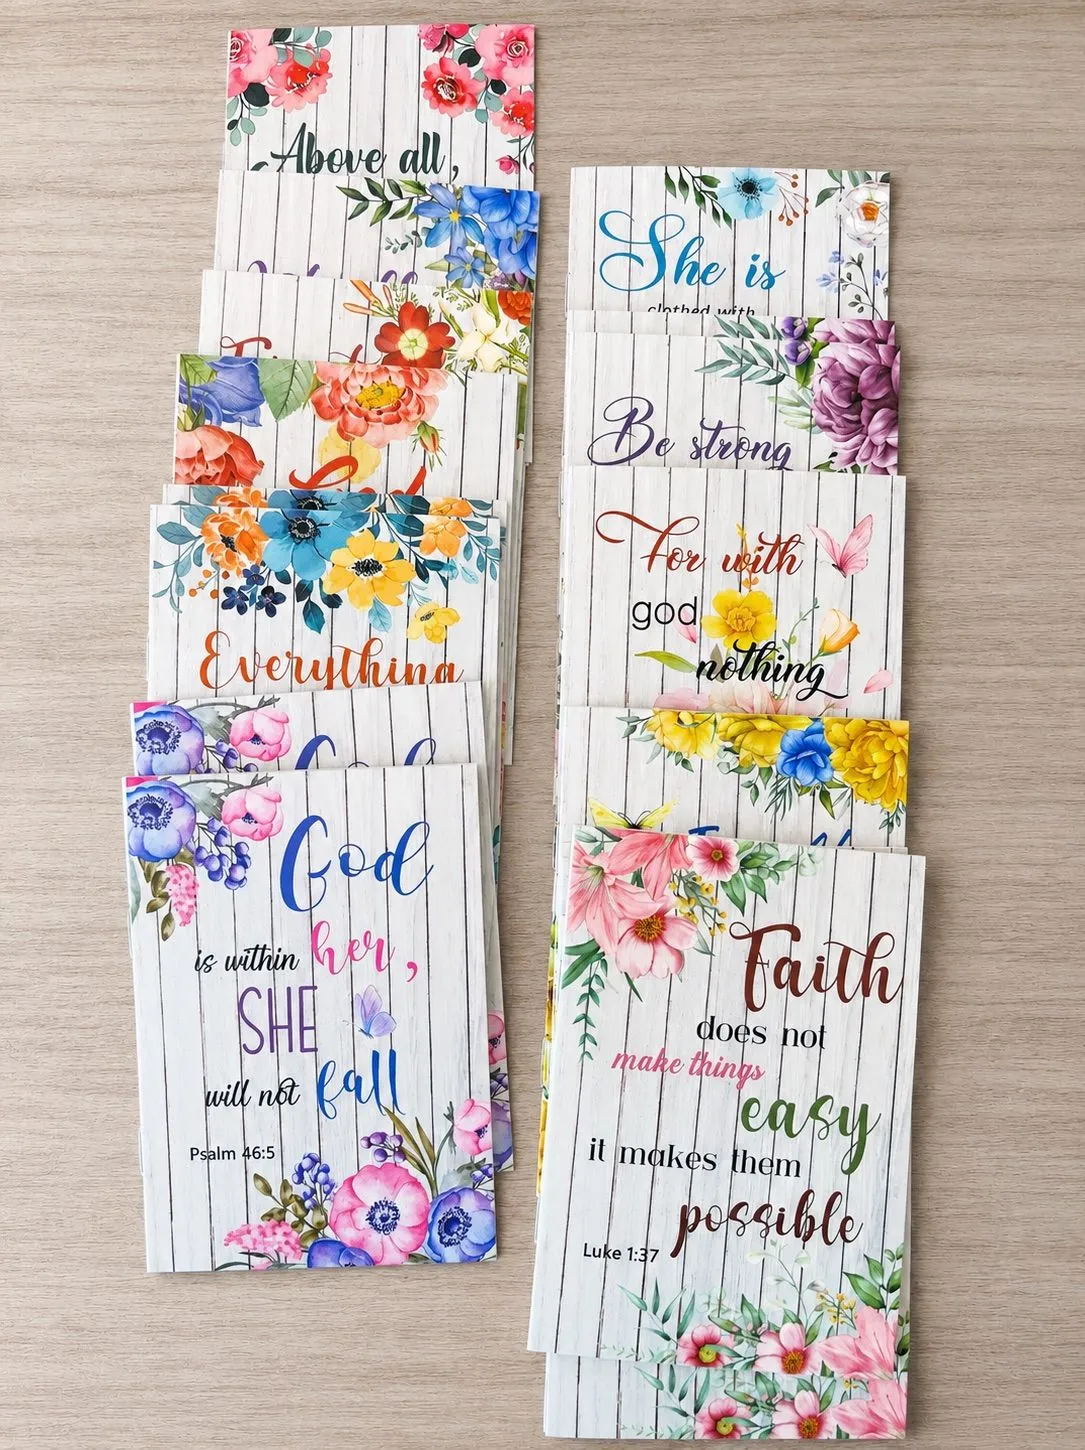 Above all,
God
Everything
God
God
is within her,
SHE
will not fall
Psalm 46:5
She is
clothed with
Be strong
For with
god
nothing
Faith
does not
make things
easy
it makes them
possible
Luke 1:37